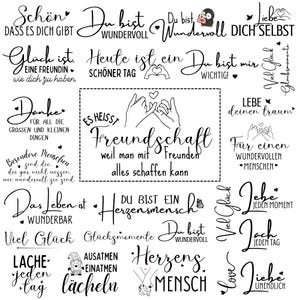 Schön
DASS ES DICH GIBT
Du bist
WUNDERVOLL
Du bist
Wundervoll
Liebe
DICH SELBST
Glück ist
EINE FREUNDIN
wie dich zu haben
Heute ist ein
SCHÖNER TAG
Du bist mir
WICHTIG
Viel Glück
Glücksmomente
Danke
FÜR ALL DIE
GROSSEN UND KLEINEN
DINGEN
ES HEISST
Freundschaft
weil man mit Freunden
alles schaffen kann
LEBE
deinen traum
Für einen
WUNDERVOLLEN
MENSCHEN
Besondere Menschen
sind die
die gar nicht wissen
wie wundervoll sie sind
Das Leben ist
WUNDERBAR
DU BIST EIN
Herzensmensch
Viel Glück
Lebe
JEDEN MOMENT
Viel Glück
Glücksmomente
Du bist
WUNDERVOLL
Lache
JEDEN TAG
LACHE
jeden
tag
AUSATMEN
EINATMEN
lächeln
Herzens
MENSCH
Love
Liebe
UNENDLICH